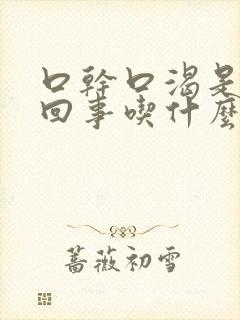 口幹口渴是
回事喫什麼
蔷薇初雪